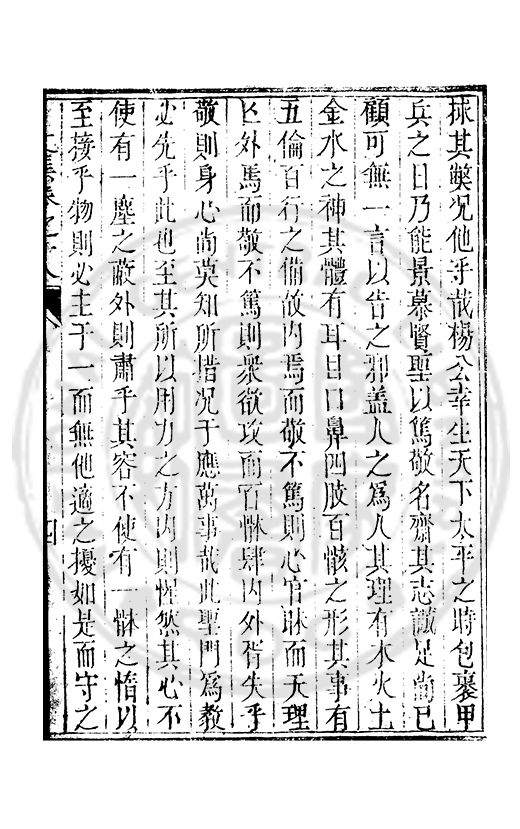 救其斃况他乎哉楊公幸生天下太平之時包裹甲
兵之日乃能景慕賢聖以篤敬名齋其志誠足尚已
顧可無一言以告之邪盖人之爲人其理有木火土
金水之神其體有耳目口鼻四肢百骸之形其事有
五倫百行之備故内焉而敬不篤則心官昧而天理
亡外焉而敬不篤則衆欲攻而百骵肆内外胥失乎
敬則身心尚莫知所措况于應萬事哉此聖門爲教
必先乎此也至其所以用力之方内則惺然其心不
使有一塵之蔽外則肅乎其容不使有一骵之惰以
至接乎物則必主于一而無他適之擾如是而守之
四